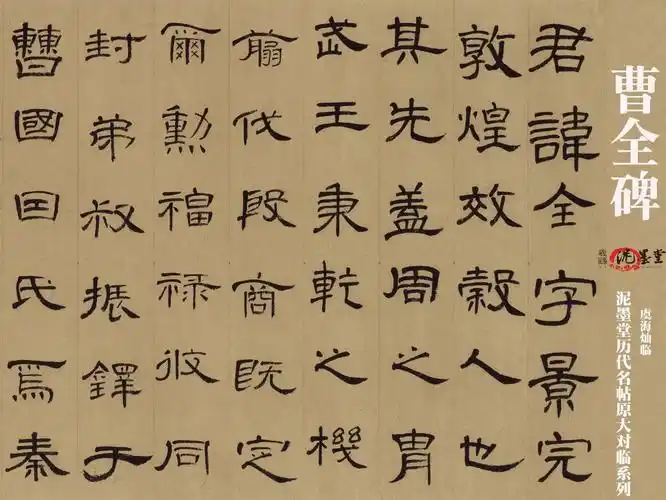 曹全碑
泥墨堂
虞海灿临
泥墨堂历代名帖原大对临系列
君諱全字景完
敦煌效穀人也
其先蓋周之胄
武王秉乾之機
翦伐殷商既定
爾勳福祿攸同
封弟叔振鐸于
曹國因氏焉秦